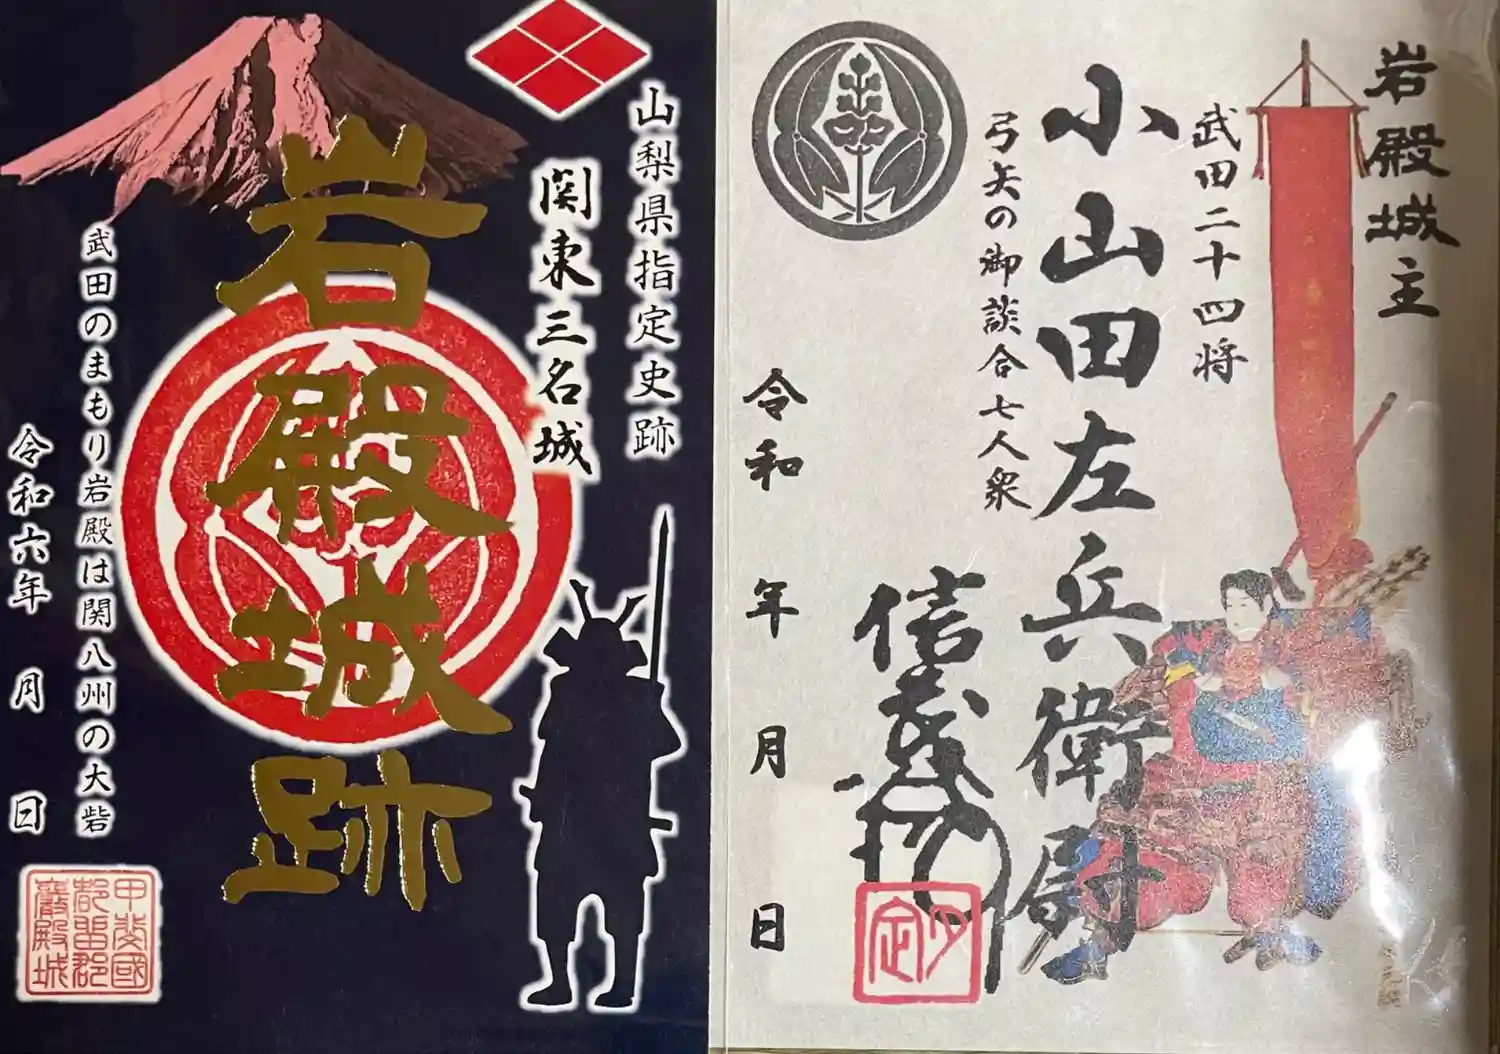 山梨県指定史跡
関東三名城
岩殿城跡
武田のまもり岩殿は関八州の大砦
令和六年 月 日
甲斐國
都留郡
巖殿城
岩殿城主
武田二十四将
小山田左兵衛尉
弓矢の御談合七人衆
信茂
令和 年 月 日